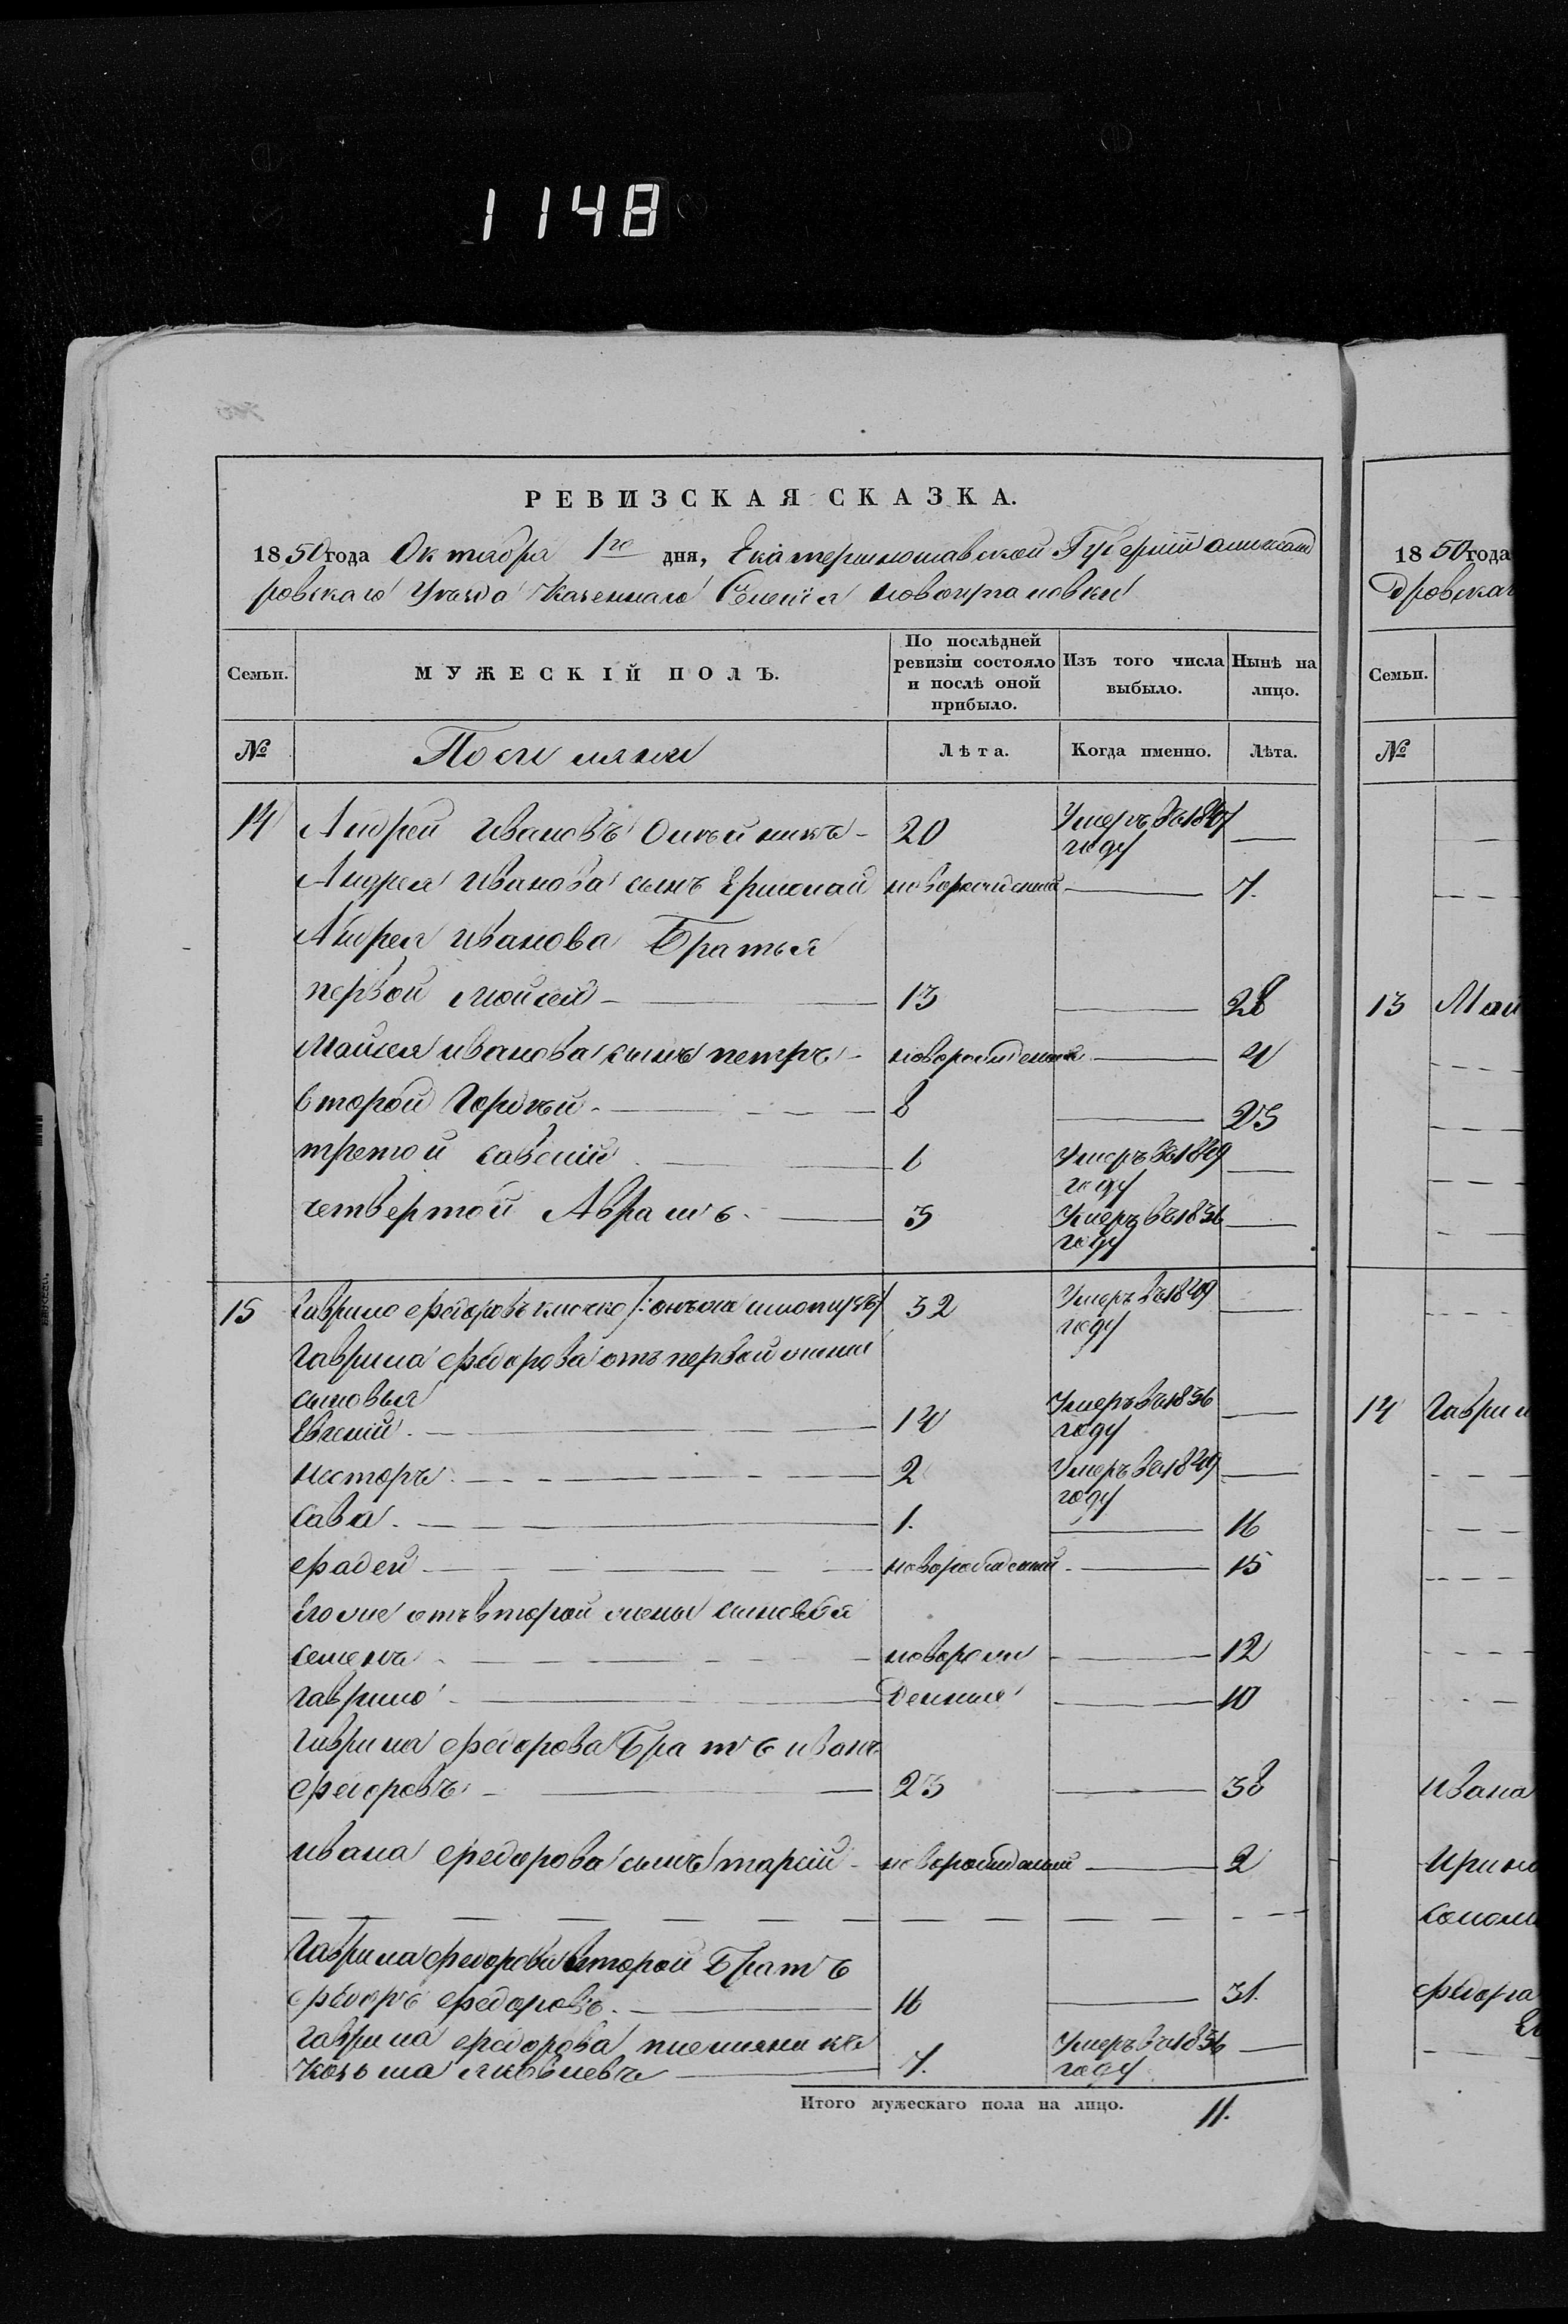 1148
РЕВИЗСКАЯ СКАЗКА.
1850 года Октября 1го дня, Екатеринославской Губернии Александ
ровскаго Уезда Казеннаго Селения
Семьи.
МУЖЕСКІЙ ПОЛЪ.
По послѣдней ревизіи состояло и послѣ оной прибыло.
Изъ того числа выбыло.
Нынѣ на лицо.
№
Лѣта.
Когда именно.
Лѣта.
14 Андрей Ивановъ Олейникъ 20 Умеръ въ 1847 году
Андрея Иванова сынъ Ермолай новорожденный 7.
Андрея Иванова Братья
первой Мойсей 13 28
Мойсея Иванова сынъ петръ новорожденный 4
второй Гордѣй 8 23
третой Савелий 6 Умеръ въ 1849 году
четвертой Аврамъ 3 Умеръ въ 1836 году
15 Гаврило Федоровъ Клочко 32 Умеръ въ 1849 году
Гаврила Федорова отъ первой жены
сыновья
Евгений 14 Умеръ въ 1836 году
Несторъ 2 Умеръ въ 1849 году
Сава 1. 16
Фадей новорожденный 15
Его же отъ второй жены сыновья
Семенъ новорож 12
Гаврило денные 10
Гаврила Федорова Братъ Иванъ
Федоровъ 23 38
Ивана Федорова сынъ новорожденный 2
Гаврила Федорова второй Братъ
Федоръ Федоровъ 16 31.
Гаврила Федорова племянникъ
Козьма Яковлевъ 7. Умеръ въ 1836 году
Итого мужескаго пола на лицо. 11.
1850 года
дровскаг
Семьи.
№
13
14 Гаврил
Ивана
Федора